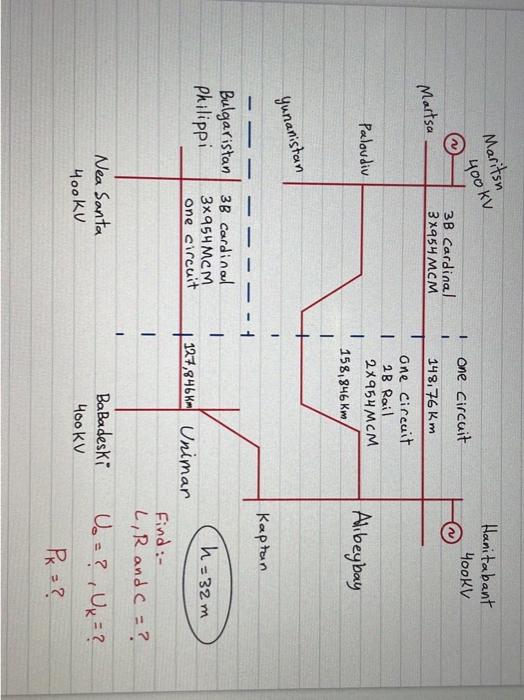 Maritsn
400 KV
Hanitabant
400KV
Martsa
3B Cardinal
3x954MCM
one circuit
148,76 Km
Paloudiv
One Circuit
2B Rail
2x954MCM
158,846 Km
Alibeybay
yunanistan
Kaptan
Bulgaristan
Philippi
3B Cardinal
3x954MCM
one circuit
127,846Km
Unimar
h = 32 m
Nea Santa
400KV
BaBadeski
400KV
Find:-
L, R and C = ?
U₀ = ? , UK = ?
PK = ?